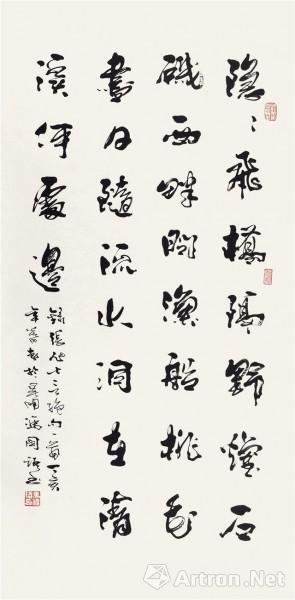 隱〻飛橋隔野煙石
磯西畔問漁船桃花
盡日隨流水洞在清
溪何處邊
錄張旭七言絕句一首丁亥
年於昆明
Artron.Net